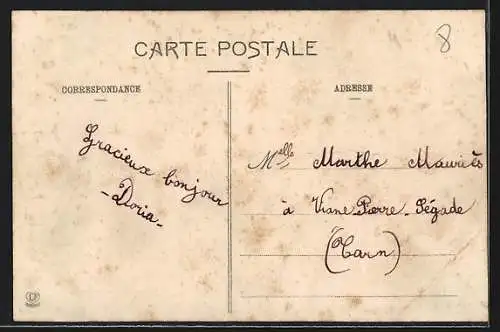 8
CARTE POSTALE
CORRESPONDANCE
ADRESSE
Gracieux bonjour
- Doria -
Melle Marthe Mauriès
à Viane-Pierre-Ségade
(Tarn)